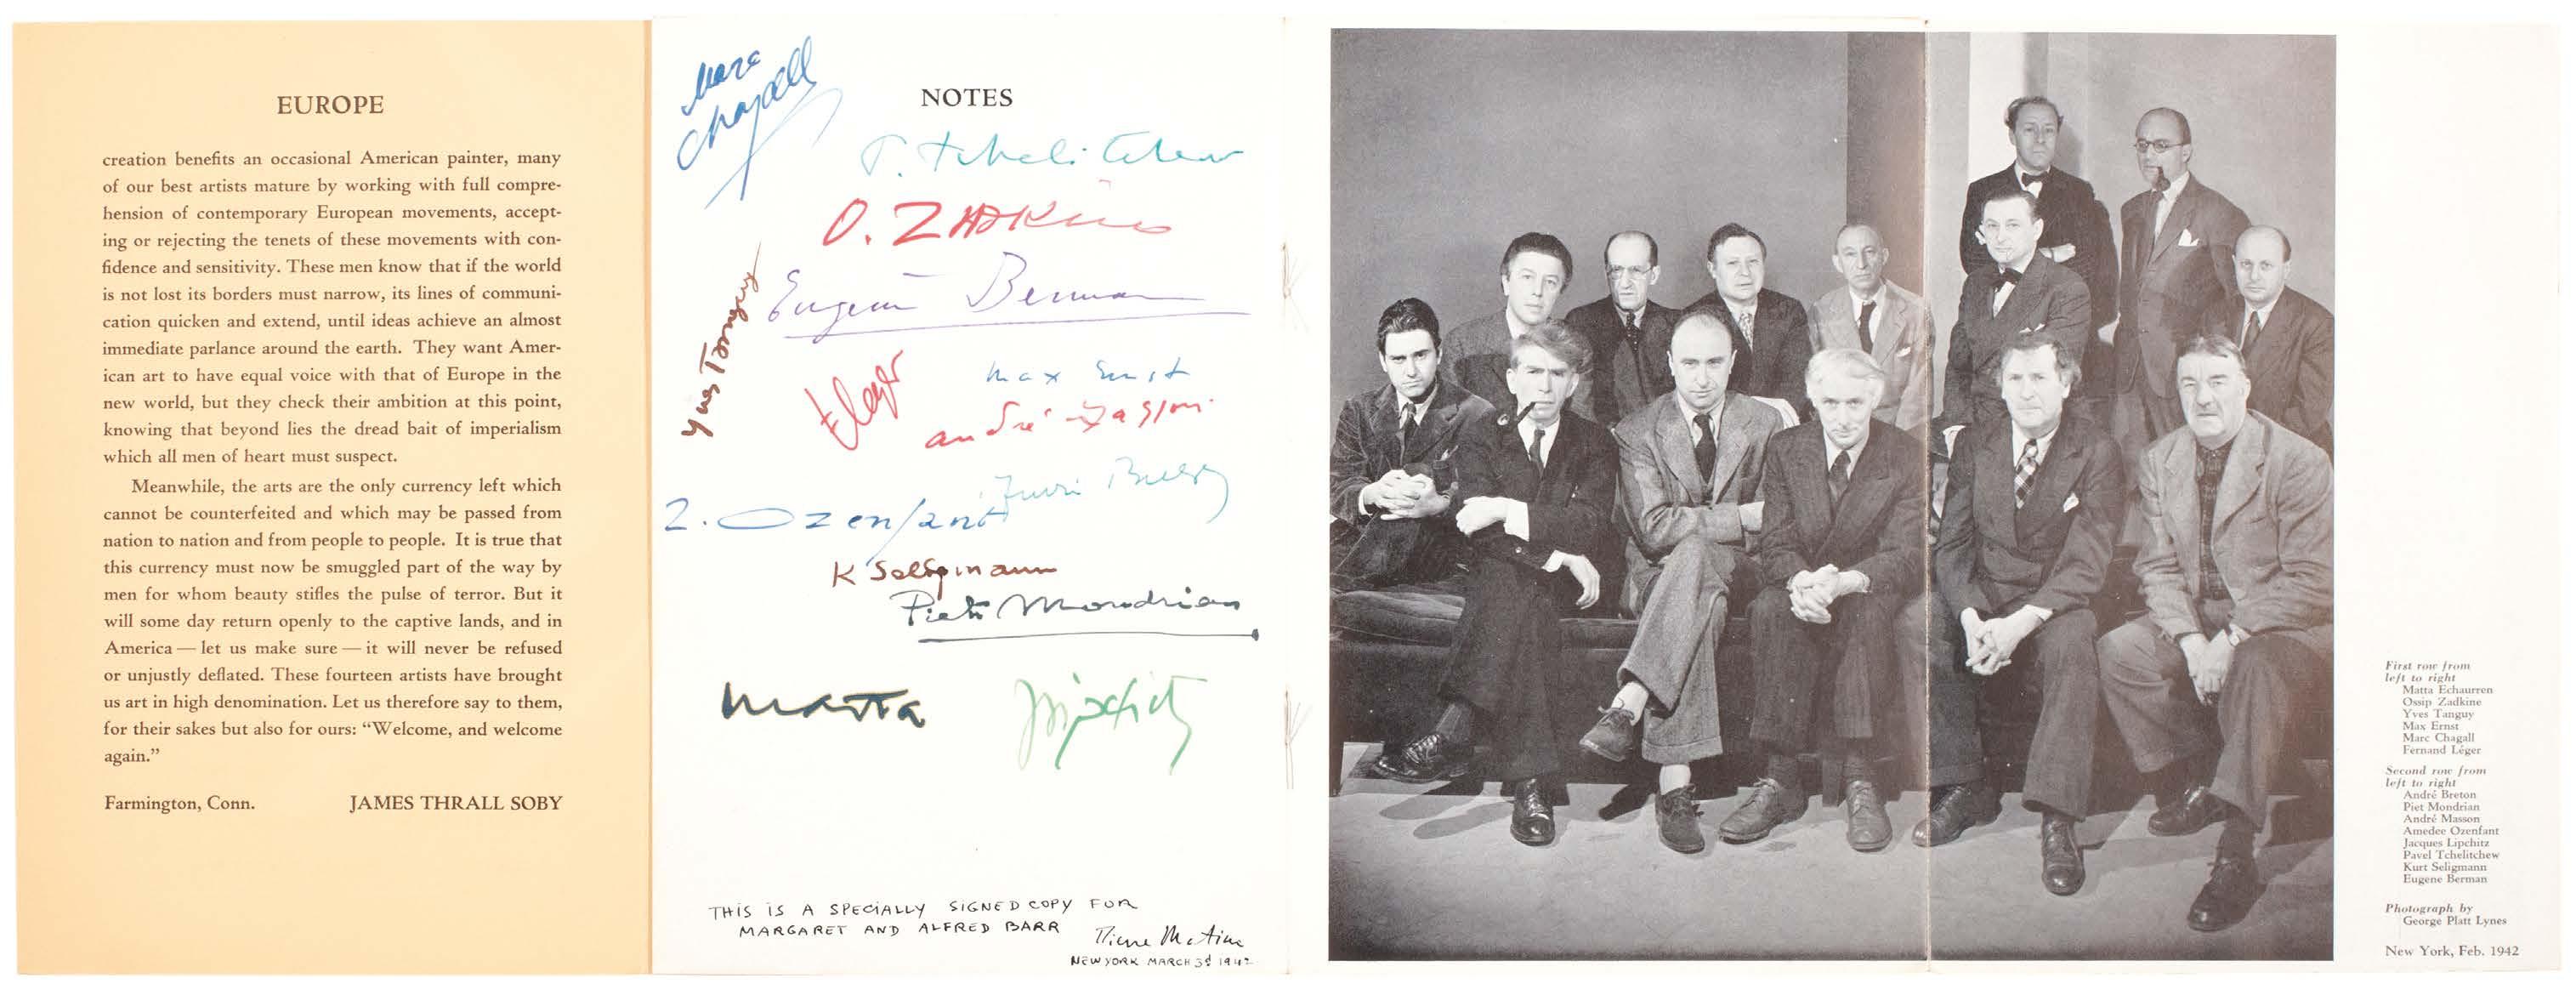 EUROPE
creation benefits an occasional American painter, many
of our best artists mature by working with full compre-
hension of contemporary European movements, accept-
ing or rejecting the tenets of these movements with con-
fidence and sensitivity. These men know that if the world
is not lost its borders must narrow, its lines of communi-
cation quicken and extend, until ideas achieve an almost
immediate parlance around the earth. They want Amer-
ican art to have equal voice with that of Europe in the
new world, but they check their ambition at this point,
knowing that beyond lies the dread bait of imperialism
which all men of heart must suspect.
Meanwhile, the arts are the only currency left which
cannot be counterfeited and which may be passed from
nation to nation and from people to people. It is true that
this currency must now be smuggled part of the way by
men for whom beauty stifles the pulse of terror. But it
will some day return openly to the captive lands, and in
America — let us make sure — it will never be refused
or unjustly deflated. These fourteen artists have brought
us art in high denomination. Let us therefore say to them,
for their sakes but also for ours: “Welcome, and welcome
again.”
Farmington, Conn. JAMES THRALL SOBY
NOTES
Marc
Chagall
P. Tchelitchew
O. ZADKINE
Eugene Berman
Yves Tanguy
F. Leger
Max Ernst
André Masson
Ozenfant
K Seligmann
Piet Mondrian
Matta
Lipchitz
THIS IS A SPECIALLY SIGNED COPY FOR
MARGARET AND ALFRED BARR
Pierre Matisse
NEW YORK MARCH 3d 1942
First row from
left to right
Matta Echaurren
Ossip Zadkine
Yves Tanguy
Max Ernst
Marc Chagall
Fernand Léger
Second row from
left to right
André Breton
Piet Mondrian
André Masson
Amedee Ozenfant
Jacques Lipchitz
Pavel Tchelitchew
Kurt Seligmann
Eugene Berman
Photograph by
George Platt Lynes
New York, Feb. 1942